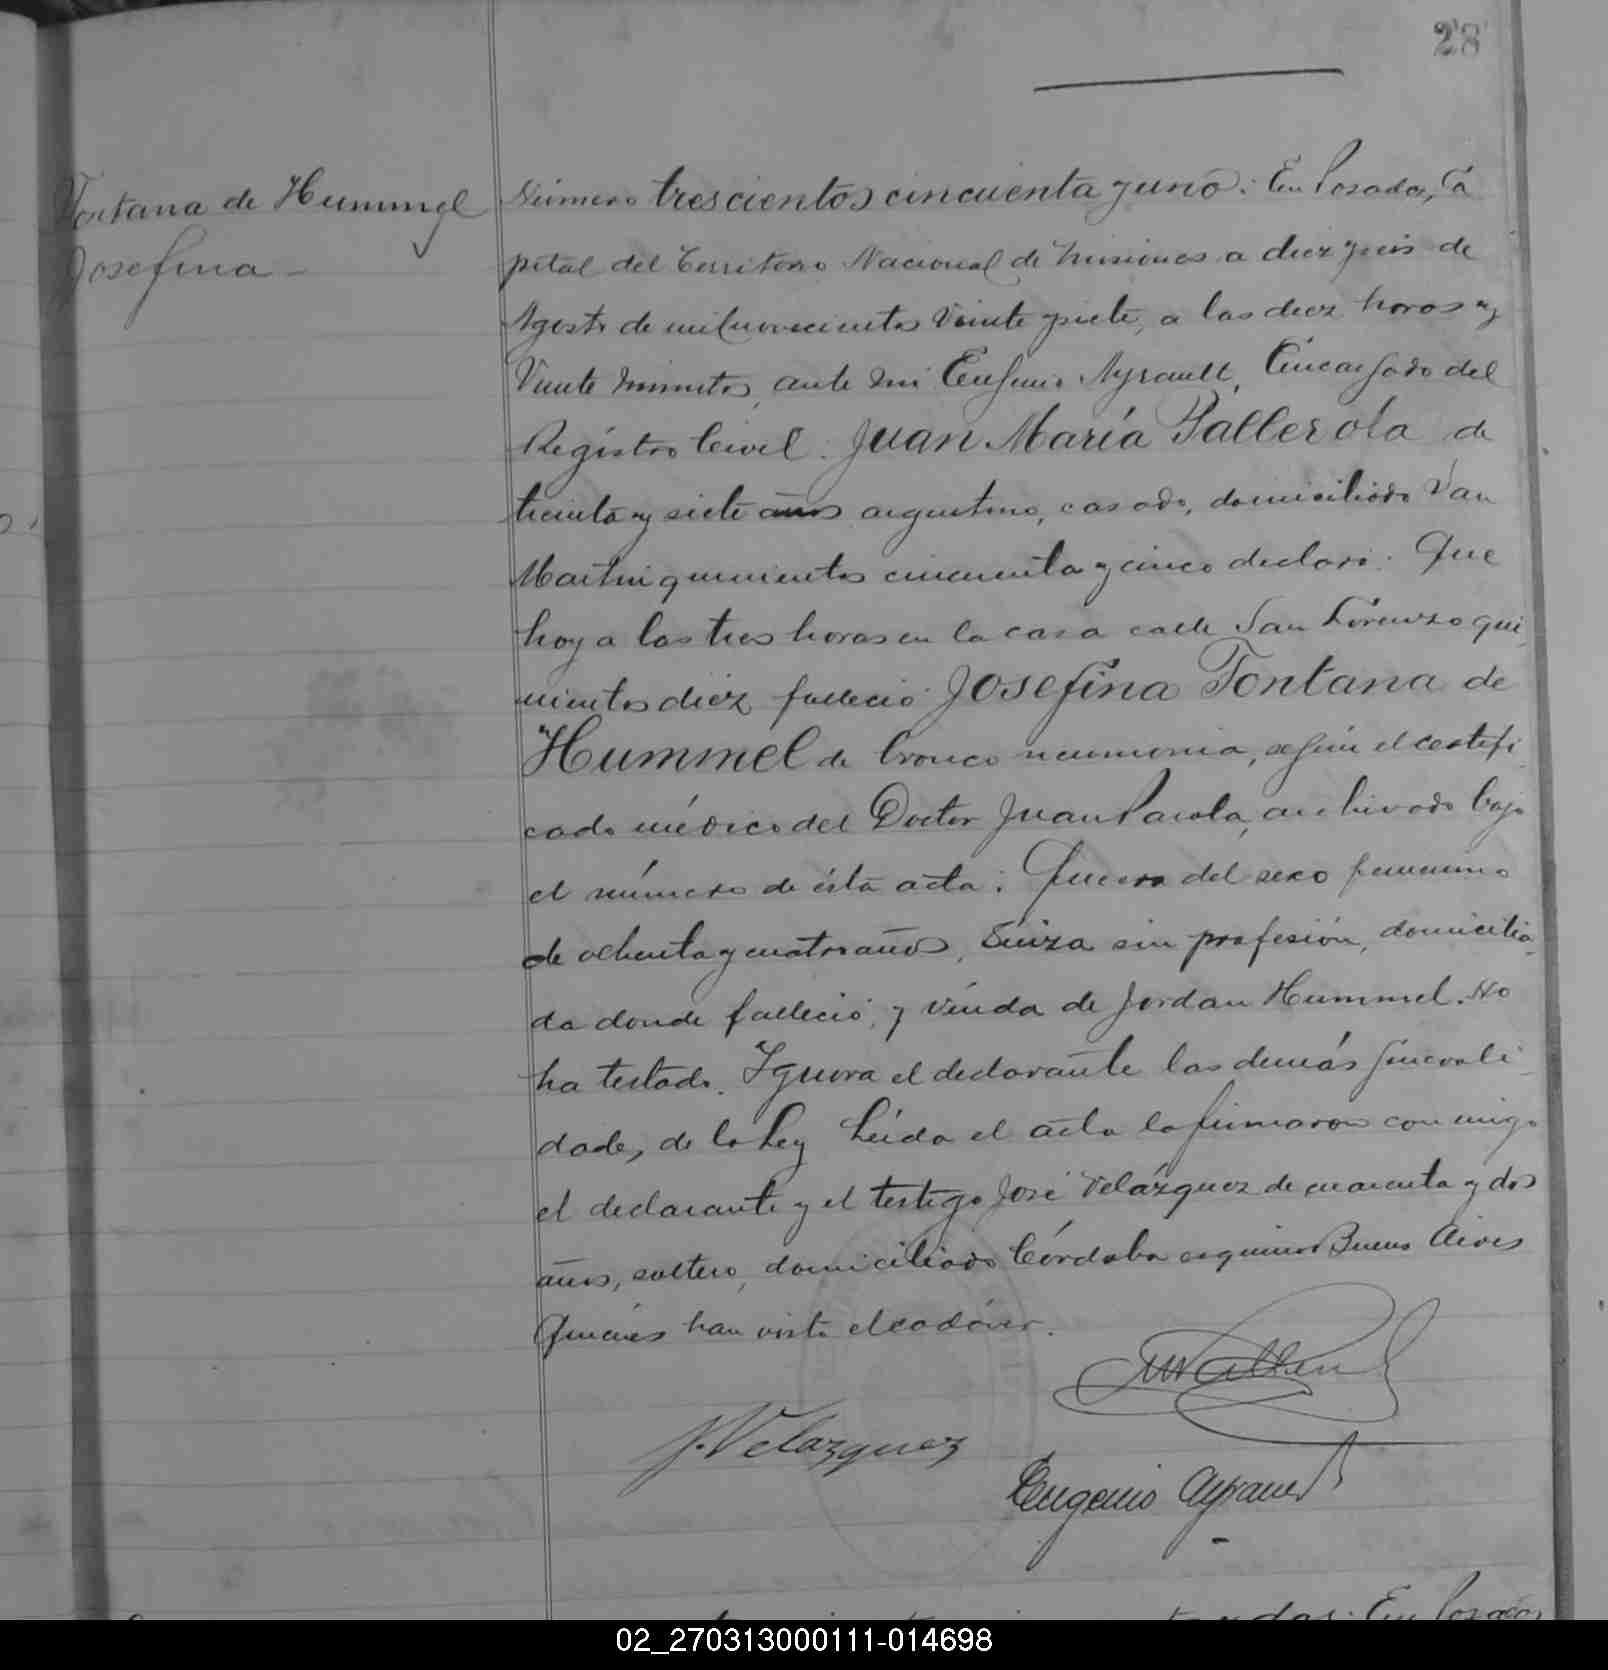 28
Fontana de Hummel
Josefina -
Número trescientos cincuenta y uno: En Posadas, Ca
pital del Territorio Nacional de Misiones a diez y seis de
Agosto de mil novecientos veinte y siete, a las diez horas y
veinte minutos, ante mi Eugenio Ayrault, Encargado del
Registro Civil: Juan María Pallerola de
treinta y siete años argentino, casado, domiciliado San
Martin quinientos cincuenta y cinco declaró: Que
hoy a las tres horas en la casa calle San Lorenzo qui
nientos diez falleció Josefina Fontana de
Hummel de bronco neumonia, según el certifi
cado médico del Doctor Juan, archivado bajo
el número de ésta acta: Que era del sexo femenino
de ochenta y cuatro años, Suiza sin profesión, domicilia
da donde falleció, y viuda de Jordan Hummel. No
ha testado. Ignora el declarante las demás generali
dades de la Ley Leida el acta la firmaron conmigo
el declarante y el testigo José Velázquez de cuarenta y dos
años, soltero, domiciliado Córdoba esquina Buenos Aires
Quienes han visto el cadáver.
J. Velazquez
Eugenio Ayrault
En Posadas,
02_270313000111-014698